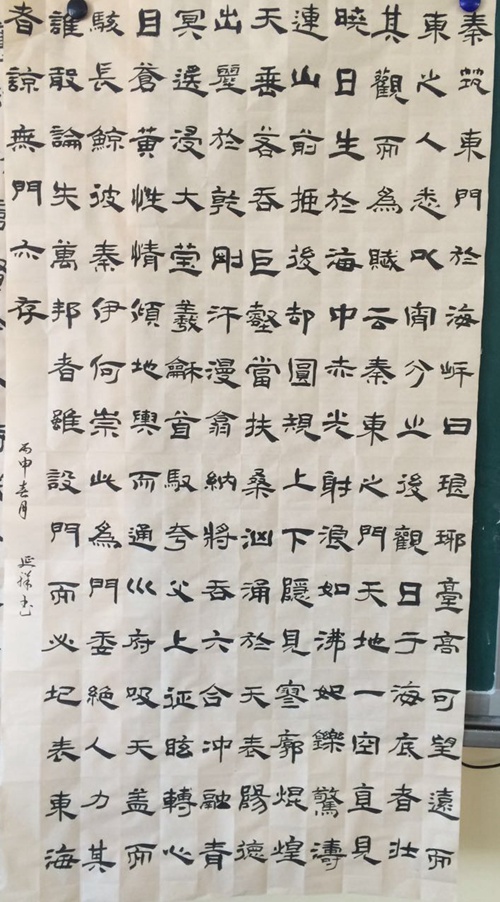 秦筑東門於海岸曰琅琊臺高可望遠而
東之人悉以宵分之後觀日于海底者壯
其觀而為賦云秦東之門天地一空直見
曉日生於海中赤光射浪如沸如鑠驚濤
連山前拒後却圓規上下隱見寥廓焜煌
天垂若吞巨壑當扶桑洶涌於天表陽德
出麗於乾剛汗漫翕納將吞六合冲融青
冥遥浸大瑩羲龢首馭夸父上征眩轉心
目蒼黃性情傾地輿而通巛府吸天盖而
駭長鯨彼秦伊何崇此為門委絕人力其
誰敢論失萬邦者雖設門而必圮表東海
者諒無門亦存
丙申春月 延祥书